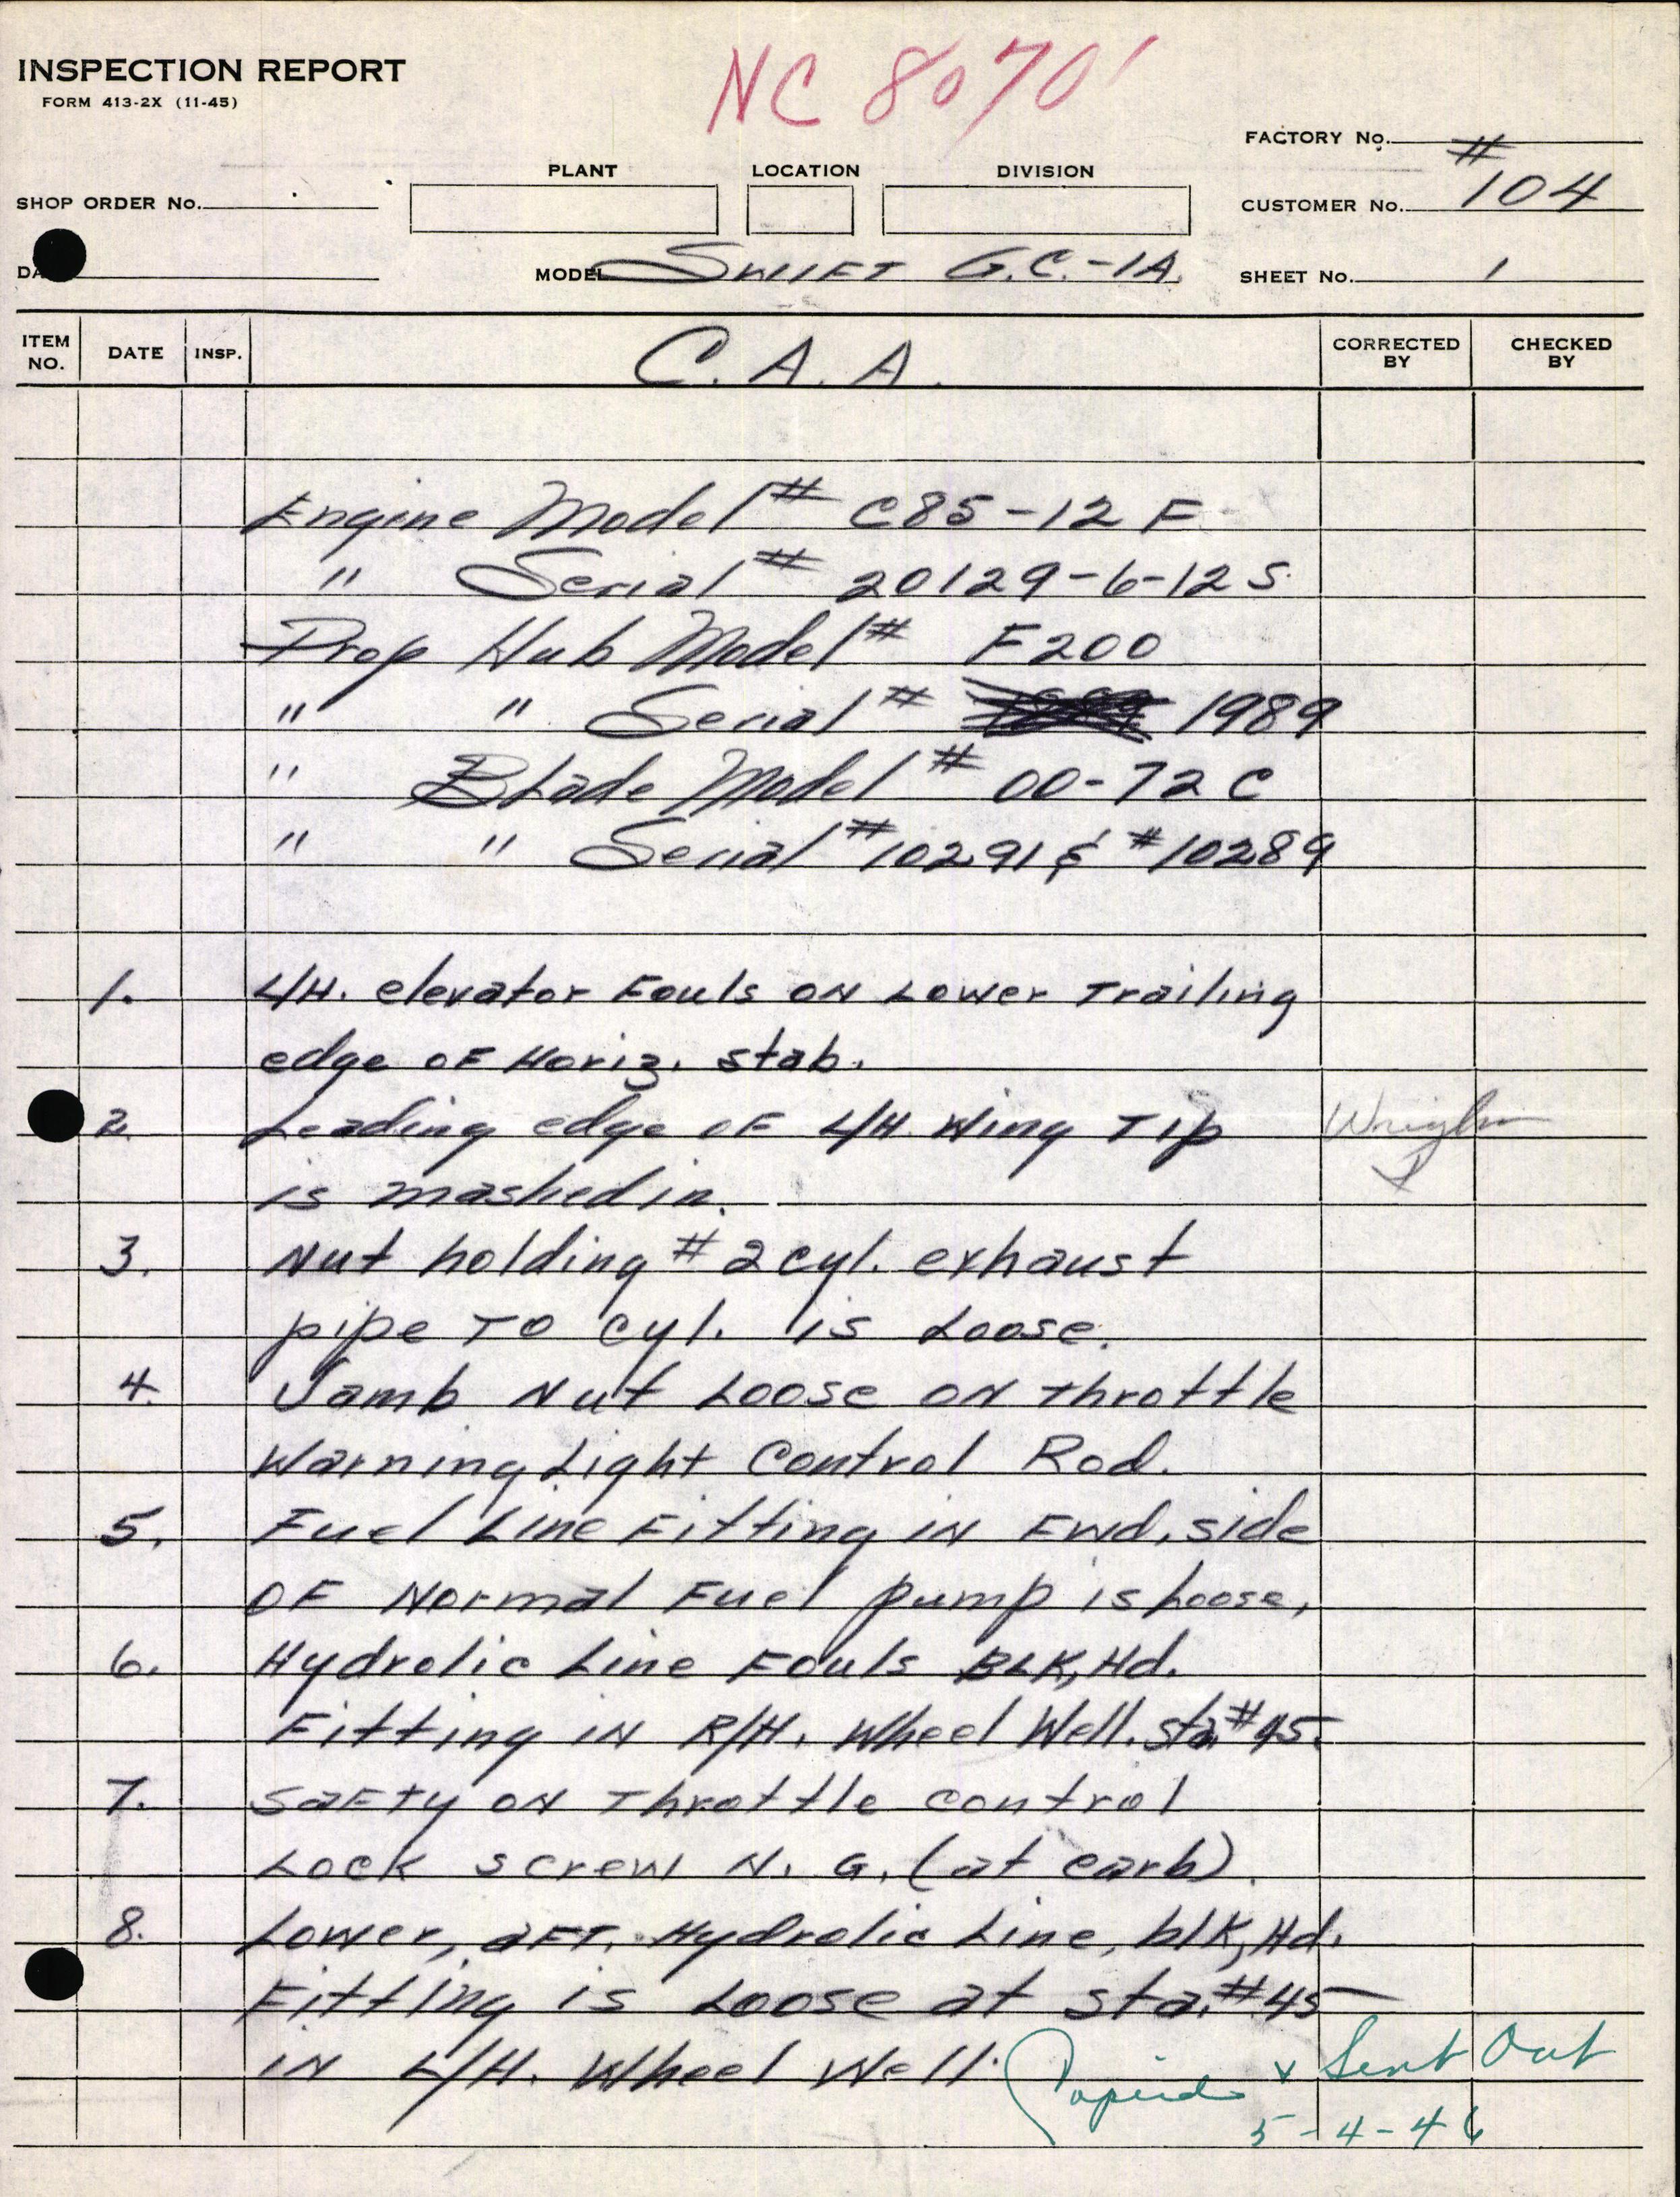 INSPECTION REPORT
FORM 413-2X (11-45)
NC 80701
FACTORY No.
SHOP ORDER No.
PLANT
LOCATION
DIVISION
CUSTOMER No. #104
MODEL SWIFT G.C.-1A.
SHEET No. 1
ITEM NO.
DATE
INSP.
C. A. A.
CORRECTED BY
CHECKED BY
Engine Model # C85-12 F
" Serial # 20129-6-12 S.
Prop Hub Model # F200
" " Serial # 1989
" Blade Model # 00-72 C
" " Serial #10291 & #10289
1. L/H. elevator Fouls on Lower Trailing
edge of Horiz. stab.
2. Leading edge of L/H. Wing Tip
is mashed in.
3. Nut holding #2 cyl. exhaust
pipe To cyl. is Loose.
4. Jamb Nut Loose on throttle
Warning Light Control Rod.
5. Fuel Line Fitting in Fwd. side
of Normal Fuel pump is Loose.
6. Hydrolic Line Fouls BLK, Hd.
Fitting in R/H. Wheel Well. sta. #45.
7. Safty on Throttle control
Lock screw N. G. (at carb).
8. Lower, aft. Hydrolic Line, blk, Hd.
Fitting is Loose at sta. #45
in L/H. Wheel Well.
& Sent Out
5-4-46